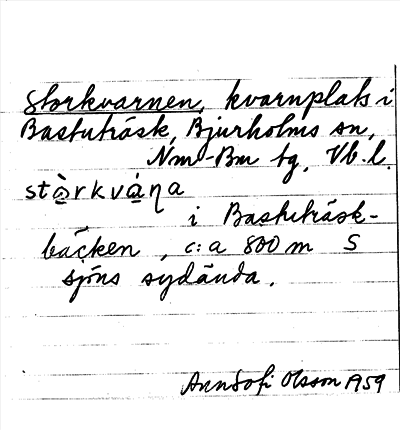 Storkvarnen, kvarnplats i
Bastuträsk, Bjurholms sn,
Nm-Bm tg, Vb. l.
stò̱rkvà̱ƞa
i Bastuträsk-
bäcken, c:a 800 m S
sjöns sydända.
AnnSofi Olsson 1959